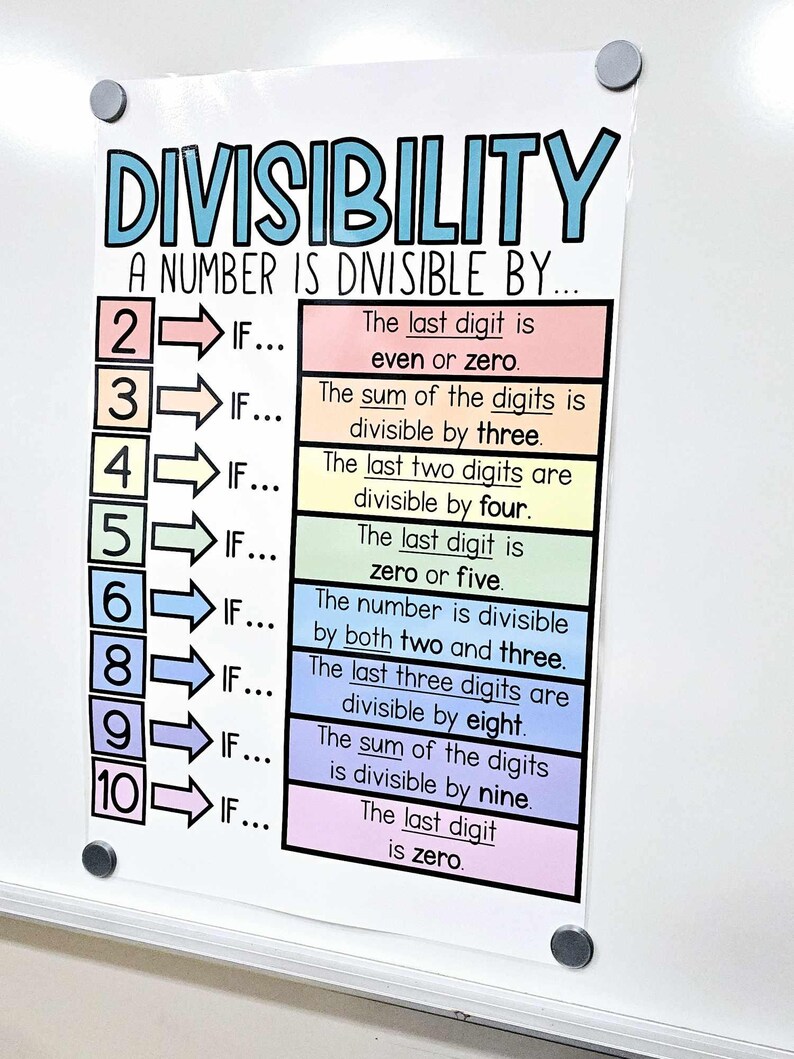 DIVISIBILITY
A NUMBER IS DIVISIBLE BY...
2 IF... The last digit is
even or zero.
3 IF... The sum of the digits is
divisible by three.
4 IF... The last two digits are
divisible by four.
5 IF... The last digit is
zero or five.
6 IF... The number is divisible
by both two and three.
8 IF... The last three digits are
divisible by eight.
9 IF... The sum of the digits
is divisible by nine.
10 IF... The last digit
is zero.